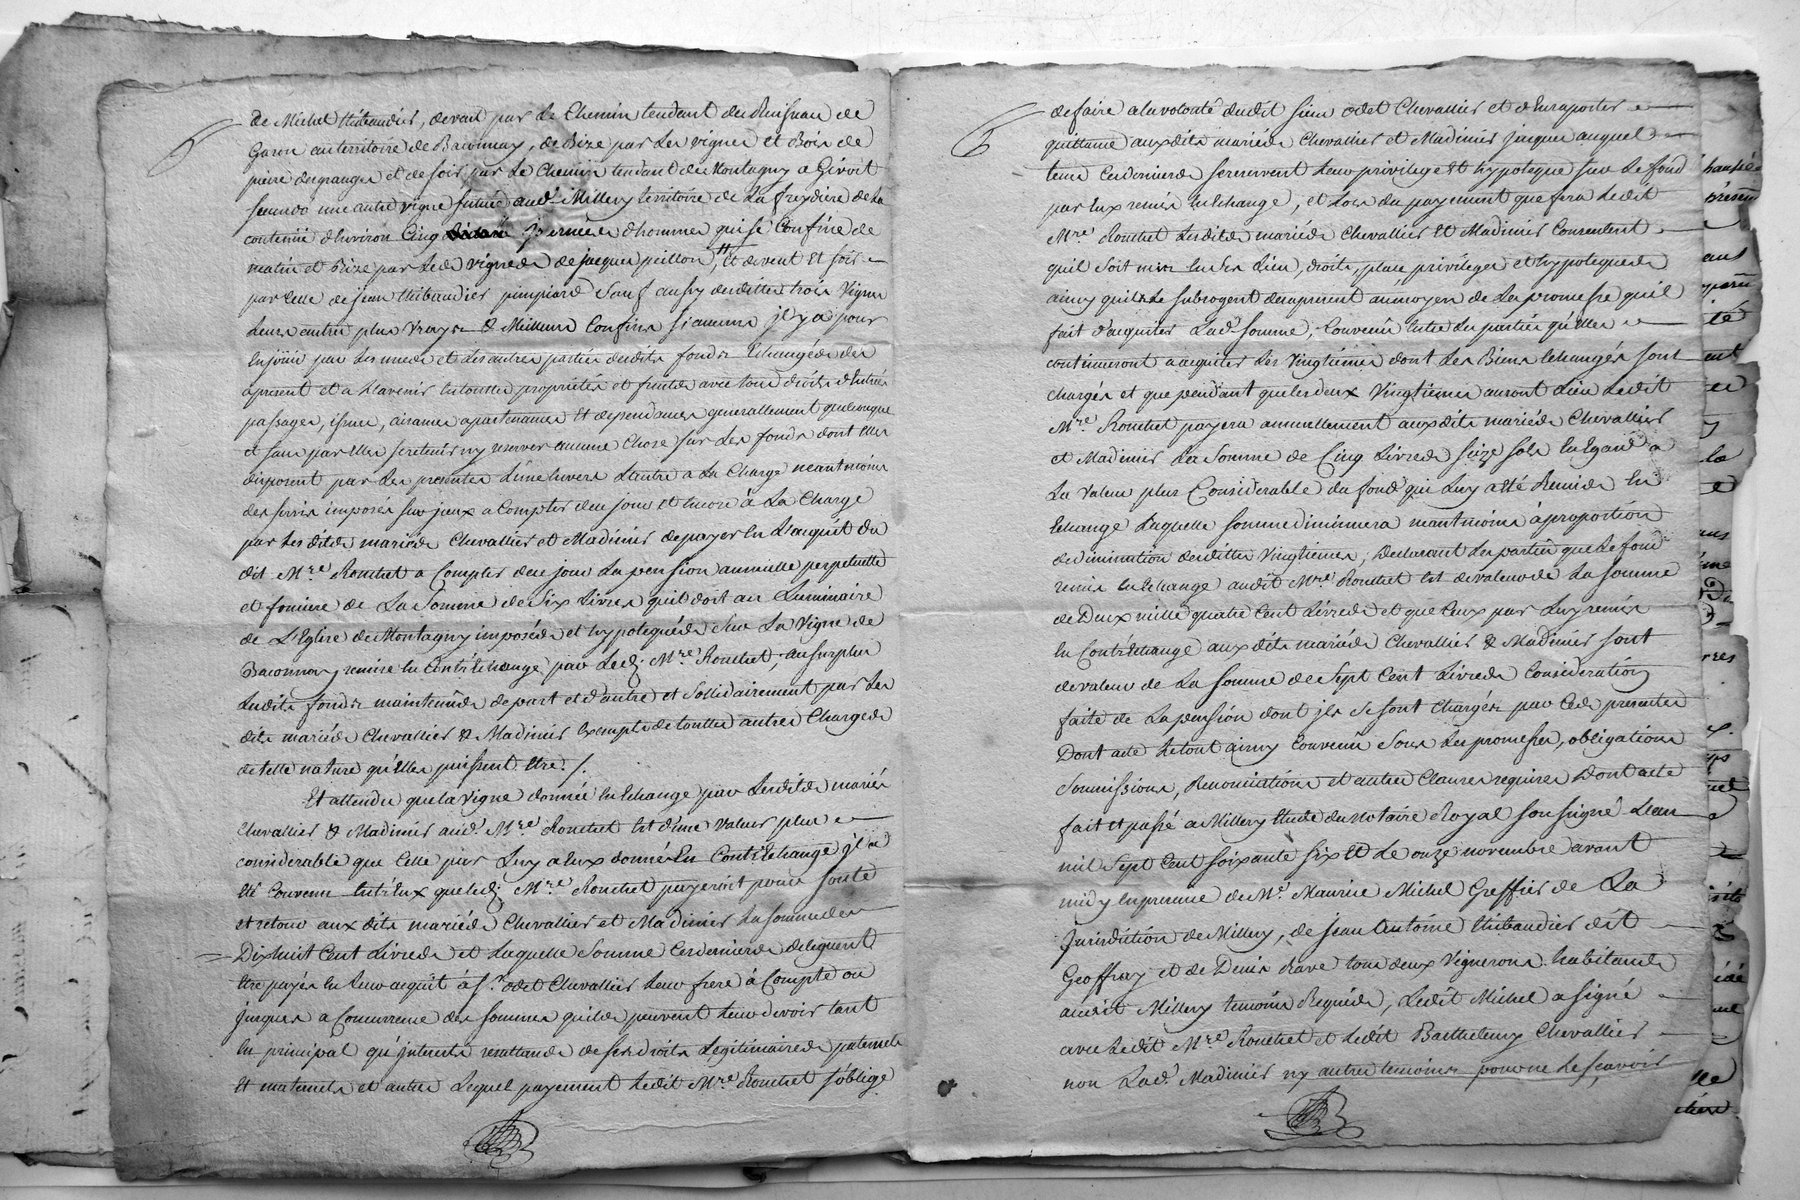 de Michel thibaudier, devent par le Chemin tendant du Ruisseau de
Garon au territoire de Baconnay, de Bize par les vignes et Bois de
pierre desgranges et de soir par le Chemin tendant de Montagny a Givort
secundo une autre vigne située aud. Millery territoire de la freydiere de la
contenüe d'Environ Cinq journées d'hommes qui se Confine de
matin et Bize par les vignes de jacques peillon, et devent Et soir
par celle de jean thibaudier pimpiard Sauf aussy desdittes trois Vignes
Leurs autres plus Vrays & Meilleurs Confins si aucuns jl y a pour
En joüir par les unes et les autres parties desdits fonds Echangés des
apresent et a L'avenir En touttes proprietés et fruits avec tous droits d'Entrées
passages, issues, aisances apartenances Et dependances generallement quelconques
et sans par elles se retenir ny reserver aucune Chose sur les fonds dont elles
disposent par les presentes L'une Envers L'autre a la Charge neantmoins
des servis imposés sur jceux a Compter de ce jour et Encore à La Charge
par lesdits mariés Chevallier et Madinier de payer En L'acquit du
dit Mre. Rouchet a Compter de ce jour La pension annuelle perpetuelle
et fonciere de La Somme de Six Livres qu'il doit au Luminaire
de L'Eglise de Montagny imposée et hypotequée sur La Vigne de
Baconnay remise En Contr'Echange par Led. Mre. Rouchet, au surplus
Lesdits fonds maintenus de part et d'autre et Sollidairement par les
dits mariés Chevallier & Madinier Exempts de touttes autres Charges
de telle nature qu'elles puissent Etre./.
Et attendu que la vigne donnée En Echange par Lesdits mariés
Chevallier & Madinier aud. Mre. Rouchet Est d'une Valeur plus
considerable que Celle par Luy a Eux donnée En Contr'Echange jl a
Eté Convenu Entr'Eux que led. Mre. Rouchet payeroit pour soute
et retour aux dits mariés Chevallier et Madinier La somme de
Dixhuit Cent Livres et Laquelle Somme Ces derniers deleguent
Etre payée En Leur acquit à Sr. odet Chevallier Leur frere à Compte ou
jusques a Concurrence des sommes qu'ils peuvent Leur devoir tant
En principal qu'jnterets resultands de ses droits Légitimaires paternels
Et maternels et autres Lequel payement Ledit Mre. Rouchet s'oblige
de faire a la volonté dudit sieur odet Chevallier et d'En raporter
quittance aux dits mariés Chevallier et Madinier jusques auquel
tems Ces derniers se reservent Leur privilege Et hypoteque sur Le fond
par Eux remis En Echange, et Lors du payement que fera Ledit
Mre. Rouchet Lesdits mariés Chevallier Et Madinier Consentent
qu'il soit mis En Ses Lieu, droits, place privileges et hypoteques
ainsy qu'ils Le subrogent desapresent au moyen de La promesse qu'il
fait d'acquiter Lad. somme, Convenü Entre Les parties qu'Elles
continueront a acquiter Les Vingtiemes dont Les Biens Echangés sont
chargés et que pendant que les deux Vingtiemes auront Lieu Ledit
Mre. Rouchet payera annuellement auxdits mariés Chevallier
et Madinier La Somme de Cinq Livres seize sols En Egard a
La Valeur plus Considerable du fond qui Luy a Eté Remis En
Echange Laquelle somme diminuera neantmoins à proportion
de diminution desdittes Vingtiemes, Declarant Les parties que Le fond
remis En Echange audit Mre. Rouchet Est de valeur de La somme
de Deux mille quatre Cent Livres et que Ceux par Luy remis
En Contr'Echange aux dits mariés Chevallier & Madinier sont
de valeur de La somme de Sept Cent Livres Consideration
faite de La pension dont jls Se sont Chargés par Ces presentes
Dont acte Le tout ainsy Convenü Sous Les promesses, obligations
Soumissions, Renonciations et autres Clauses requises Dont acte
fait et passé a Millery Etude du Notaire Royal soussigné L'an
mil Sept Cent soixante six Et Le onze novembre avant
midy En presence de Me. Maurice Michel Greffier de La
Jurisdition de Millery, de jean Antoine thibaudier dit
Geoffray et de Denis Rave tous deux Vignerons habitants
audit Millery temoins Requis, Ledit Michel a signé
avec Ledit Mre. Rouchet et Ledit Barthelemy Chevallier
non Lad. Madinier ny autres temoins pour ne le sçavoir